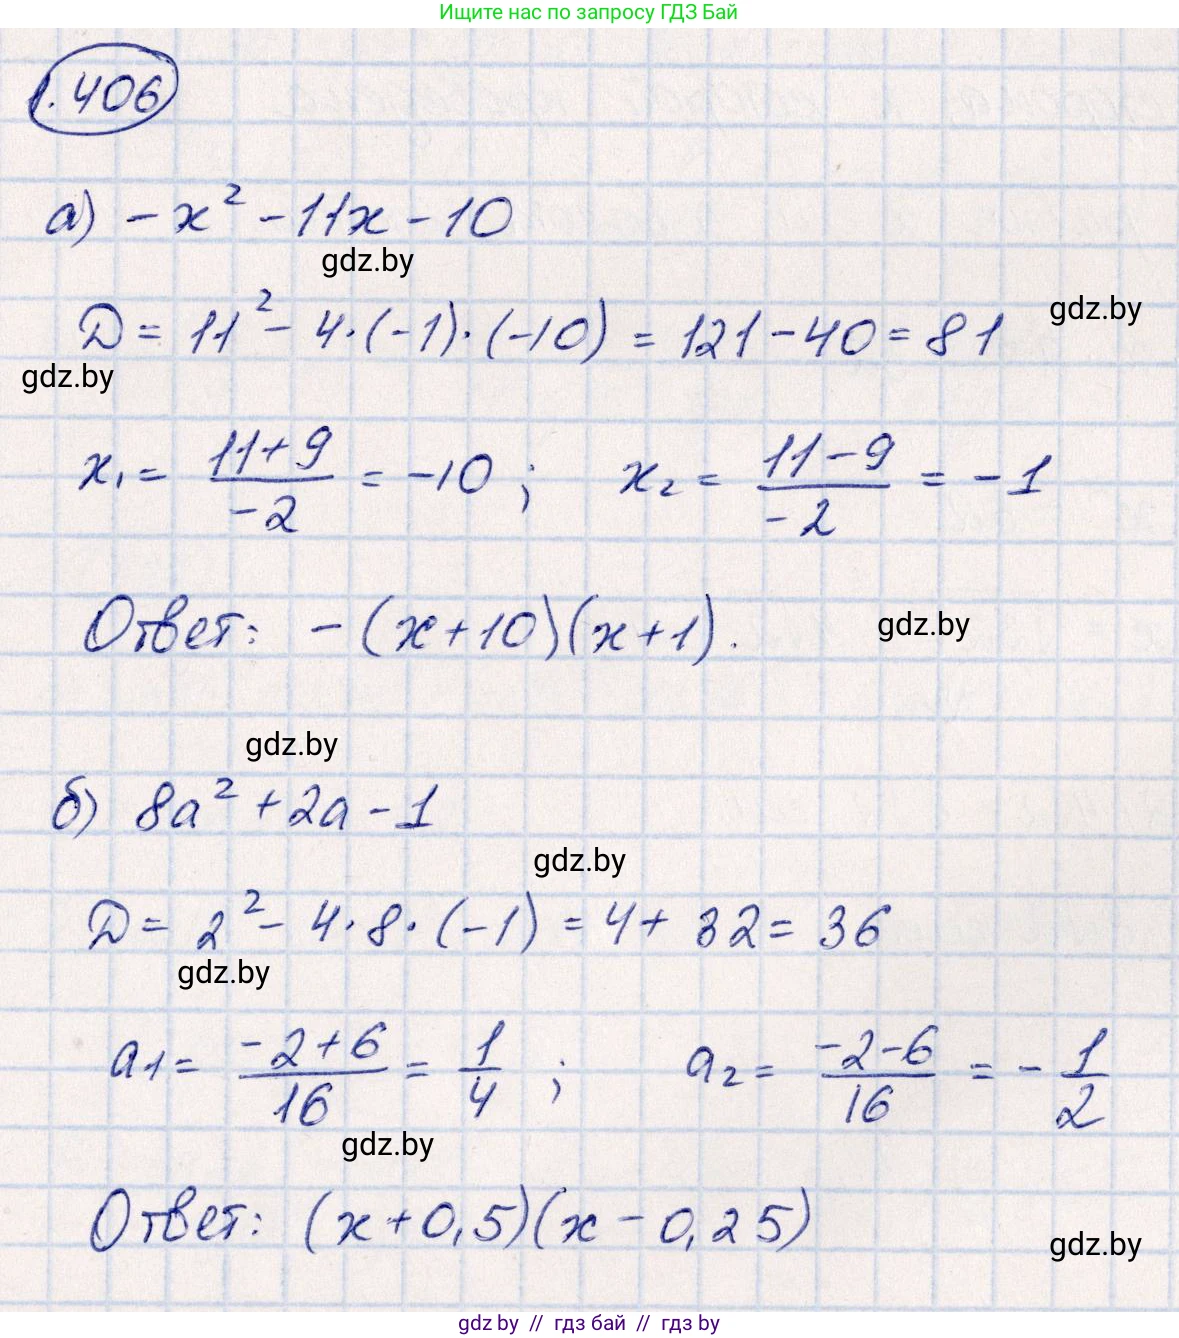 Ищите нас по запросу ГДЗ Бай
1.406
а) -x² - 11x - 10
gdz.by
gdz.by
D = 11² - 4·(-1)·(-10) = 121 - 40 = 81
gdz.by
x₁ = (11+9)/(-2) = -10 ; x₂ = (11-9)/(-2) = -1
Ответ: -(x+10)(x+1).
gdz.by
gdz.by
б) 8a² + 2a - 1
gdz.by
D = 2² - 4·8·(-1) = 4 + 32 = 36
gdz.by
a₁ = (-2+6)/16 = 1/4 ; a₂ = (-2-6)/16 = -1/2
gdz.by
Ответ: (x+0,5)(x-0,25)
gdz.by
gdz by // гдз бай // gdz by